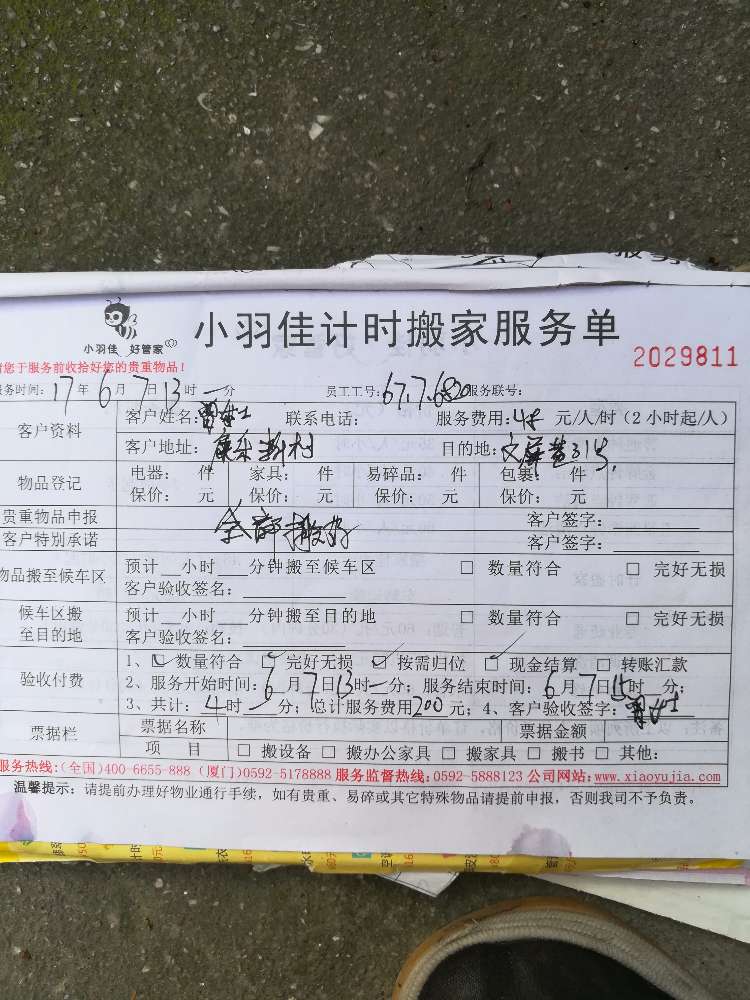 小羽佳 好管家
小羽佳计时搬家服务单
2029811
请您于服务前收拾好您的贵重物品！
服务时间：17年6月7日13时一分 员工工号：67.7.6820 服务联号：
客户资料
客户姓名： 女士 联系电话： 服务费用：48 元/人/时（2小时起/人）
客户地址：康乐新村 目的地：文屏 31号
物品登记
电器： 件 家具： 件 易碎品： 件 包裹： 件
保价： 元 保价： 元 保价： 元 保价： 元
贵重物品申报 客户签字：
客户特别承诺 全部搬好 客户签字：
物品搬至候车区
预计 小时 分钟搬至候车区 □ 数量符合 □ 完好无损
客户验收签名：
候车区搬至目的地
预计 小时 分钟搬至目的地 □ 数量符合 □ 完好无损
客户验收签名：
验收付费
1、☑ 数量符合 ☑ 完好无损 ☑ 按需归位 ☑ 现金结算 □ 转账汇款
2、服务开始时间：6月7日13时一分；服务结束时间：6月7日15时 分；
3、共计：4时一分；总计服务费用200元；4、客户验收签字： 女士
票据栏
票据名称 票据金额
项 目 □ 搬设备 □ 搬办公家具 □ 搬家具 □ 搬书 □ 其他：
服务热线：(全国)400-6655-888 (厦门)0592-5178888 服务监督热线：0592-5888123 公司网站：www.xiaoyujia.com
温馨提示：请提前办理好物业通行手续，如有贵重、易碎或其它特殊物品请提前申报，否则我司不予负责。